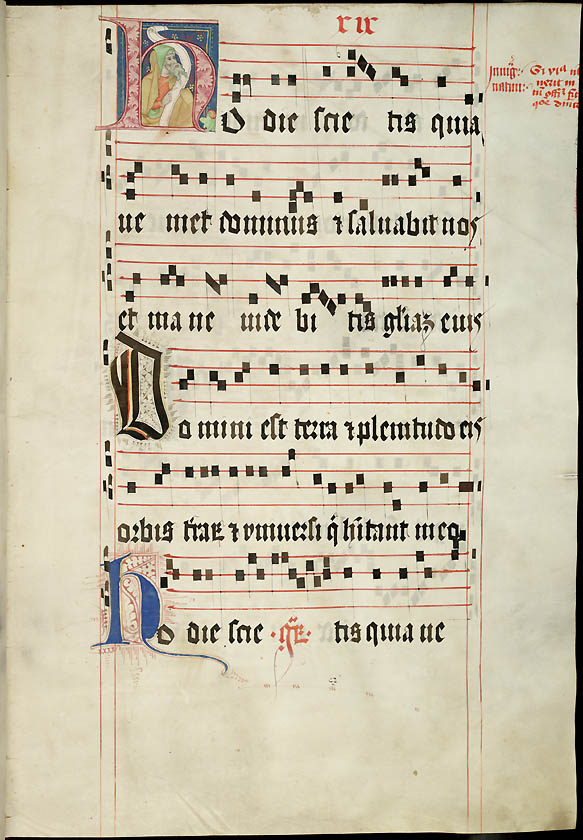 xix
Hodie scie tis quia
ue niet dominus ⁊ saluabit nos
et ma ne uide bi tis gliaꝫ eius
Domini est terra ⁊ plenitudo eiꝰ
orbis ⁊ vniuersi q̇ hītant in eo
Hodie scie tis quia ue